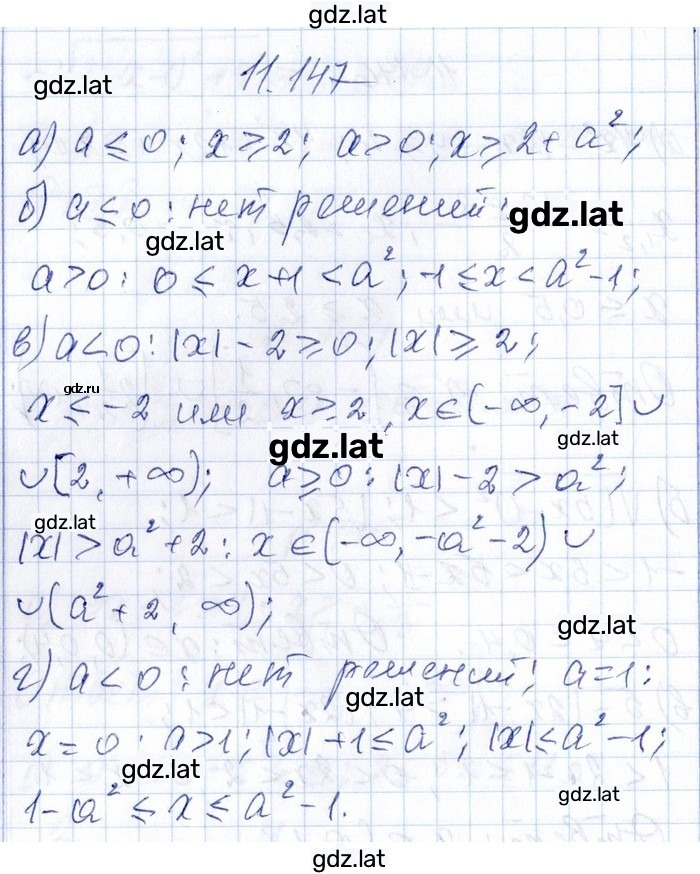 gdz.lat
11.147
gdz.lat
а) a ≤ 0; x ≥ 2; a > 0; x ≥ 2 + a²;
б) a ≤ 0: нет решений;
gdz.lat
gdz.lat
a > 0: 0 ≤ x + 1 < a²; -1 ≤ x < a² - 1;
в) a < 0: |x| - 2 ≥ 0; |x| ≥ 2;
gdz.ru
x ≤ -2 или x ≥ 2, x ∈ (-∞, -2] ∪
gdz.lat
gdz.lat
∪ [2, +∞); a ≥ 0: |x| - 2 > a²;
gdz.lat
|x| > a² + 2: x ∈ (-∞, -a² - 2) ∪
∪ (a² + 2, ∞);
gdz.lat
г) a < 0: нет решений; a = 1:
gdz.lat
x = 0: a > 1; |x| + 1 ≤ a²; |x| ≤ a² - 1;
gdz.lat
1 - a² ≤ x ≤ a² - 1.
gdz.lat
gdz.lat